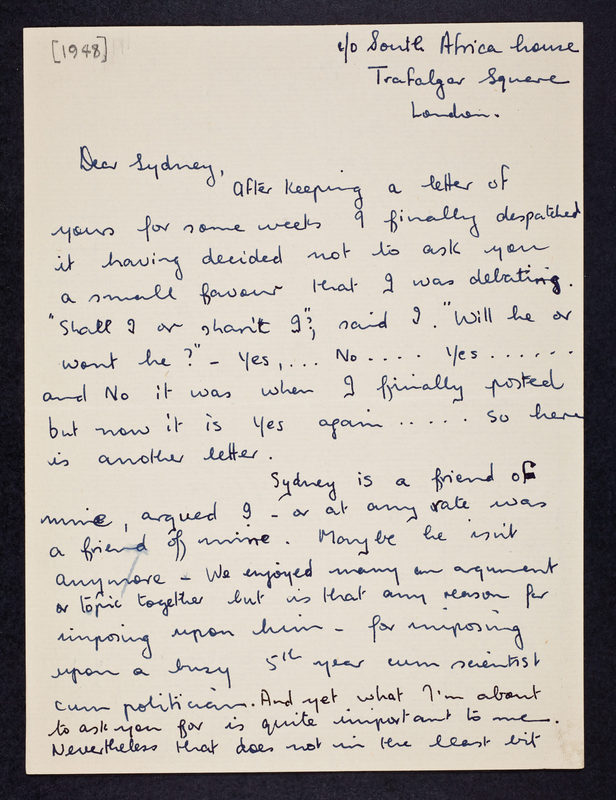 [1948]
c/o South Africa house
Trafalgar Square
London.
Dear Sydney,
After keeping a letter of
yours for some weeks I finally despatched
it having decided not to ask you
a small favour that I was debating.
"Shall I or shan't I?", said I. "Will he or
wont he?" - Yes, ... No .... Yes ......
and No it was when I finally posted
but now it is Yes again ..... So here
is another letter.
Sydney is a friend of
mine, argued I - or at any rate was
a friend of mine. Maybe he isn't
anymore - We enjoyed many an argument
or topic together but is that any reason for
imposing upon him - for imposing
upon a busy 5th year cum scientist
cum politician. And yet what I'm about
to ask you for is quite important to me.
Nevertheless that does not in the least bit